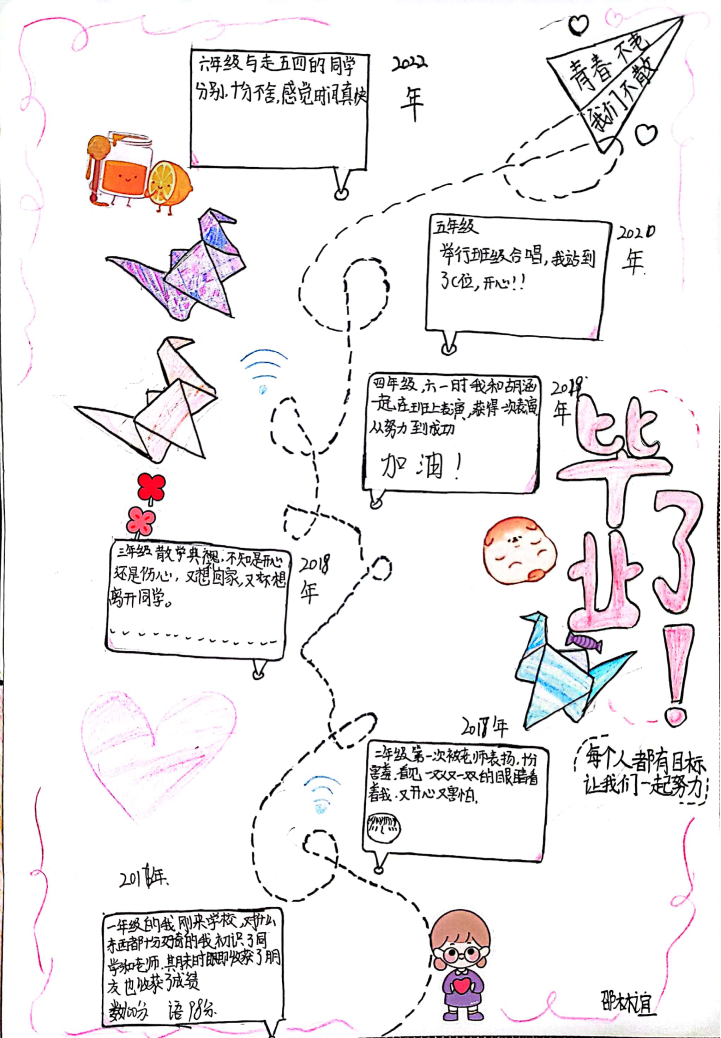 青春不老
我们不散
2022
年
六年级与走五四的同学
分别,十分不舍,感觉时间真快
2020
年
五年级
举行班级合唱,我站到
了C位,开心!!
2019
年
四年级,六一时我和胡涵
一起,在班上表演,获得一次表演
从努力到成功
加油!
毕业了!
2018
年
三年级 散学典礼,不知是开心
还是伤心,又想回家,又不想
离开同学。
2017年
二年级第一次被老师表扬,十分
害羞,看见一双又一双的眼睛看
着我,又开心又害怕,
每个人都有目标
让我们一起努力
2016年
一年级的我刚来学校,对什么
东西都十分好奇的我初识了同
学和老师,其期末时我即收获了朋
友也收获了成绩
数100分 语98分
邵林谊